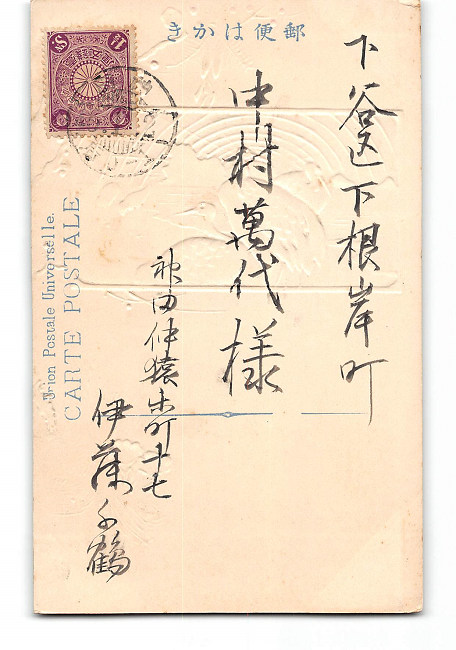 郵便はかき
下谷区下根岸町
中村萬代様
神田仲猿楽町十七
伊藤千鶴
Union Postale Universelle.
CARTE POSTALE